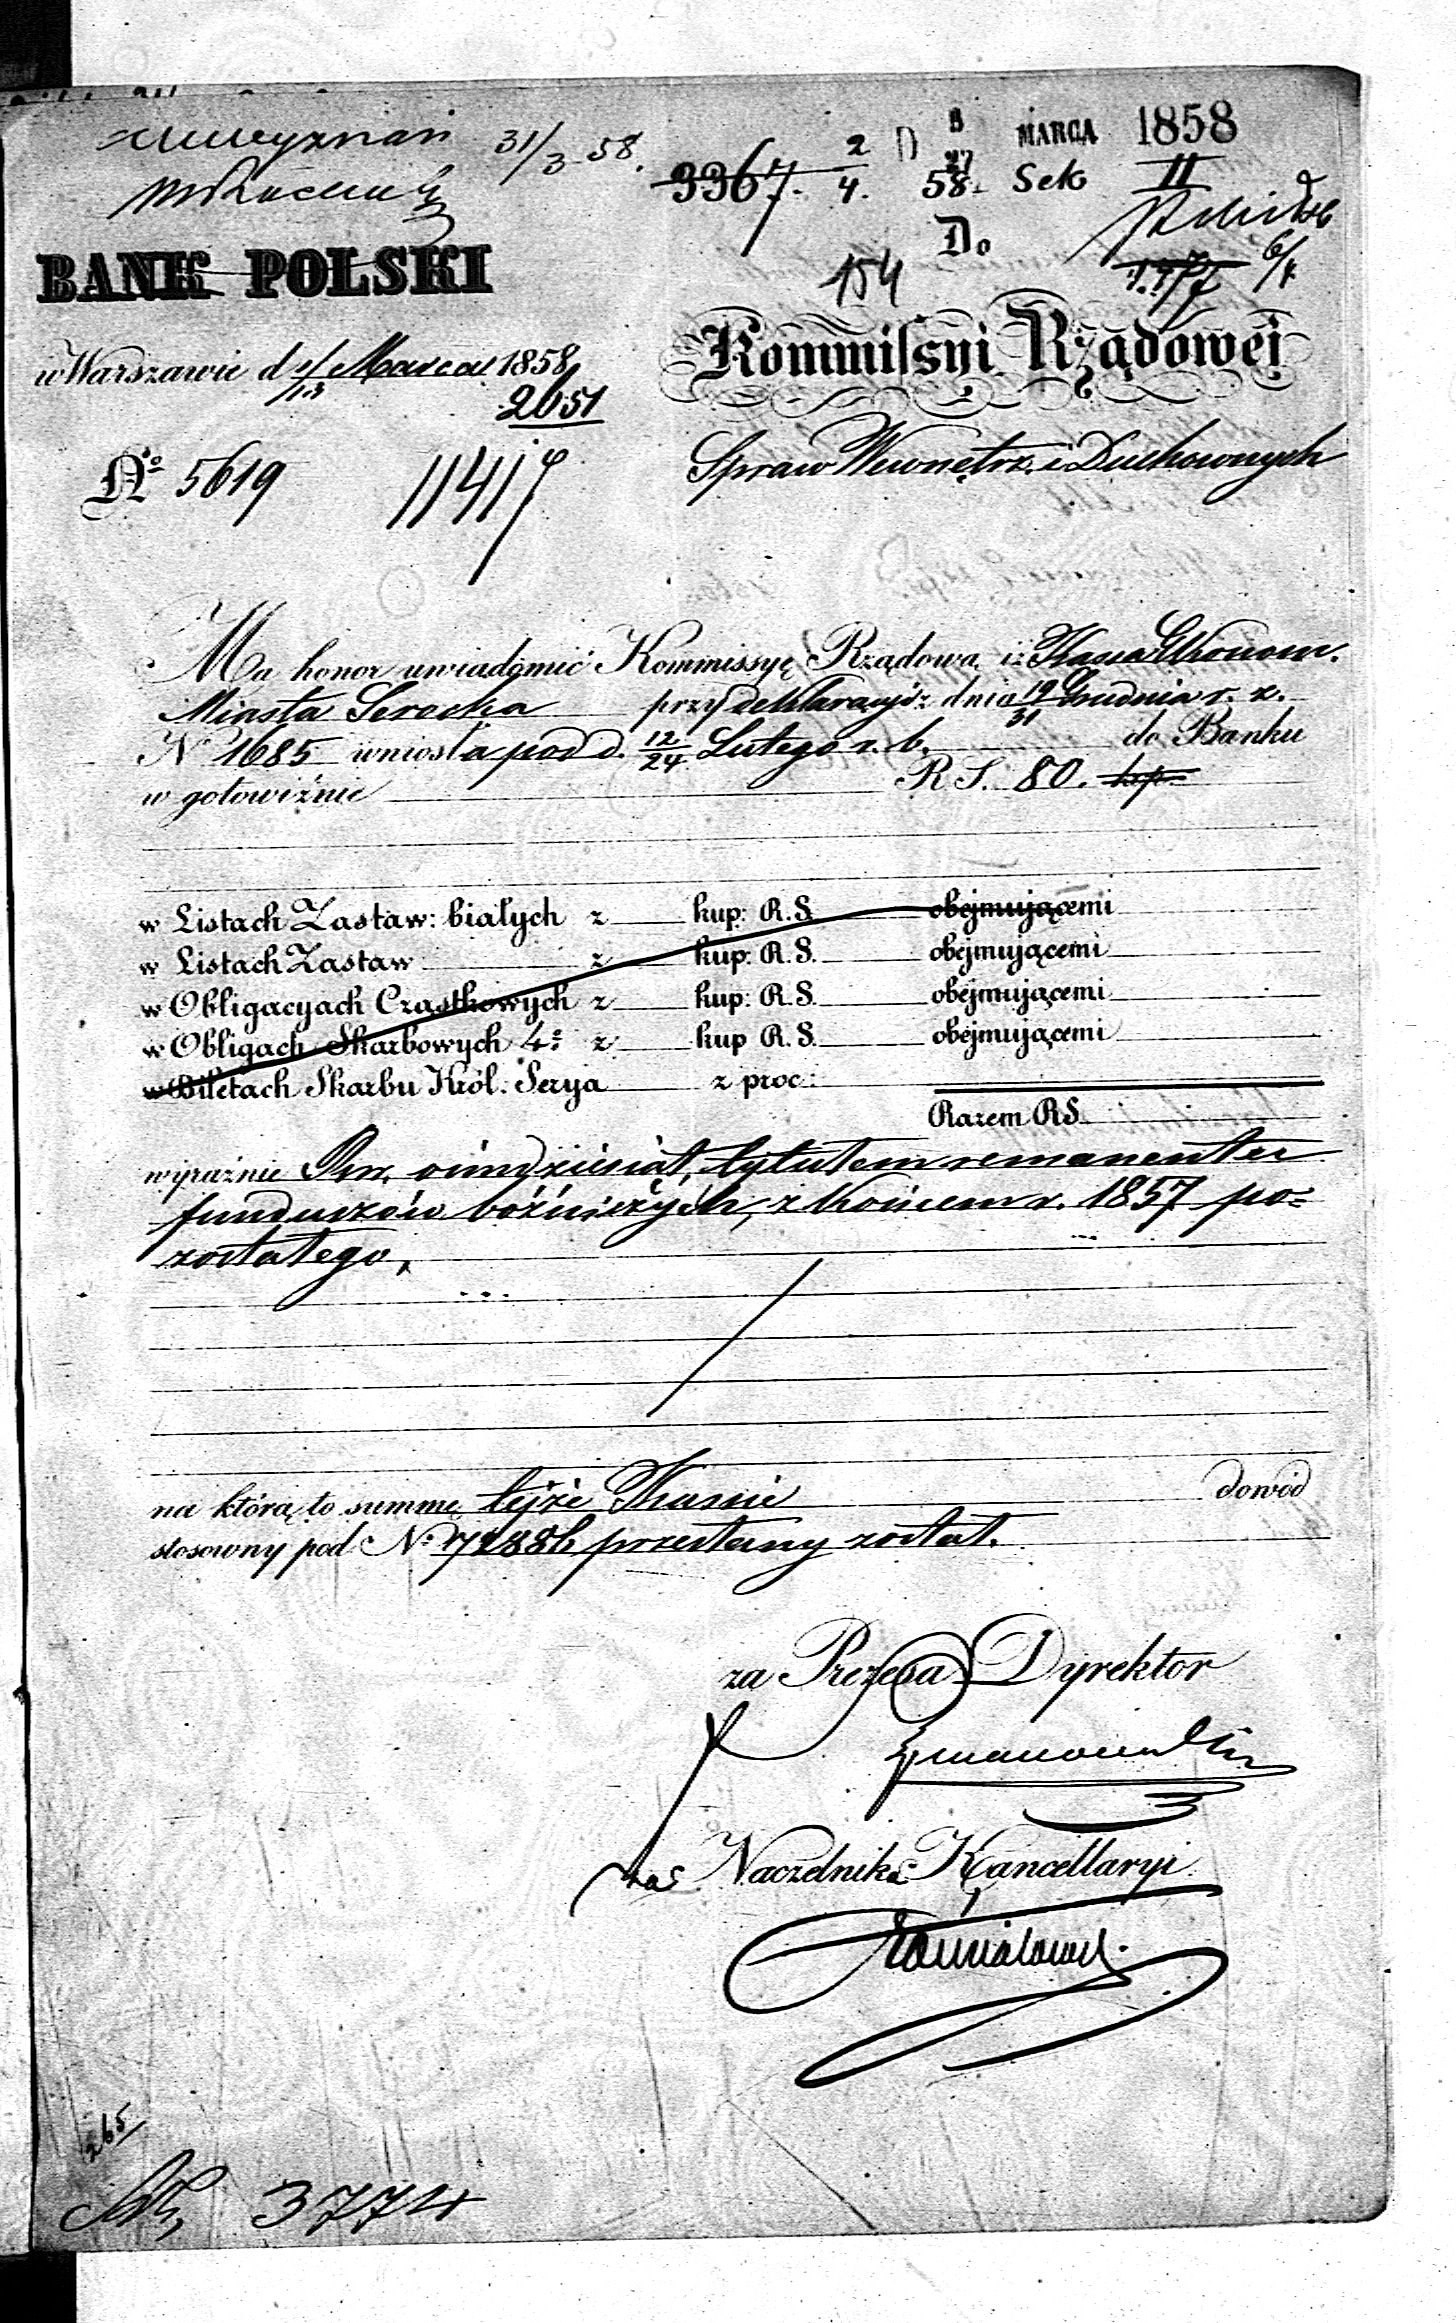 31/3 58.
3367. 2/4. D 3/27 MARCA 1858
58. Sek II
BANK POLSKI
Do
154
1977 6/4
w Warszawie d 1/13 Marca 1858
2651
Kommissyi Rządowej
Spraw Wewnętrz. i Duchownych
No 5619
11417
Ma honor uwiadomić Kommissyę Rządową iż Kassa Ekonom.
Miasta Serocka przy deklaracyi z dnia 19/31 Grudnia r. z.
No 1685 wniosła pod d. 12/24 Lutego r. b. do Banku
w gotowiźnie R S. 80. kop.
w Listach Zastaw: białych z kup: R. S. obejmującemi
w Listach Zastaw z kup: R. S. obejmującemi
w Obligacyach Cząstkowych z kup: R. S. obejmującemi
w Obligach Skarbowych 4: z kup R. S. obejmującemi
w Biletach Skarbu Król: Serya z proc:
Razem RS.
wyraźnie Rsr. ośmdziesiąt, tytułem remanentu
funduszów bóżniczych, z końcem r. 1857 po=
zostałego,
na którą to summę tejże Kassie dowód
stosowny pod No 72886 przesłany został.
za Prezesa Dyrektor
za Naczelnika Kancellaryi
265
3774